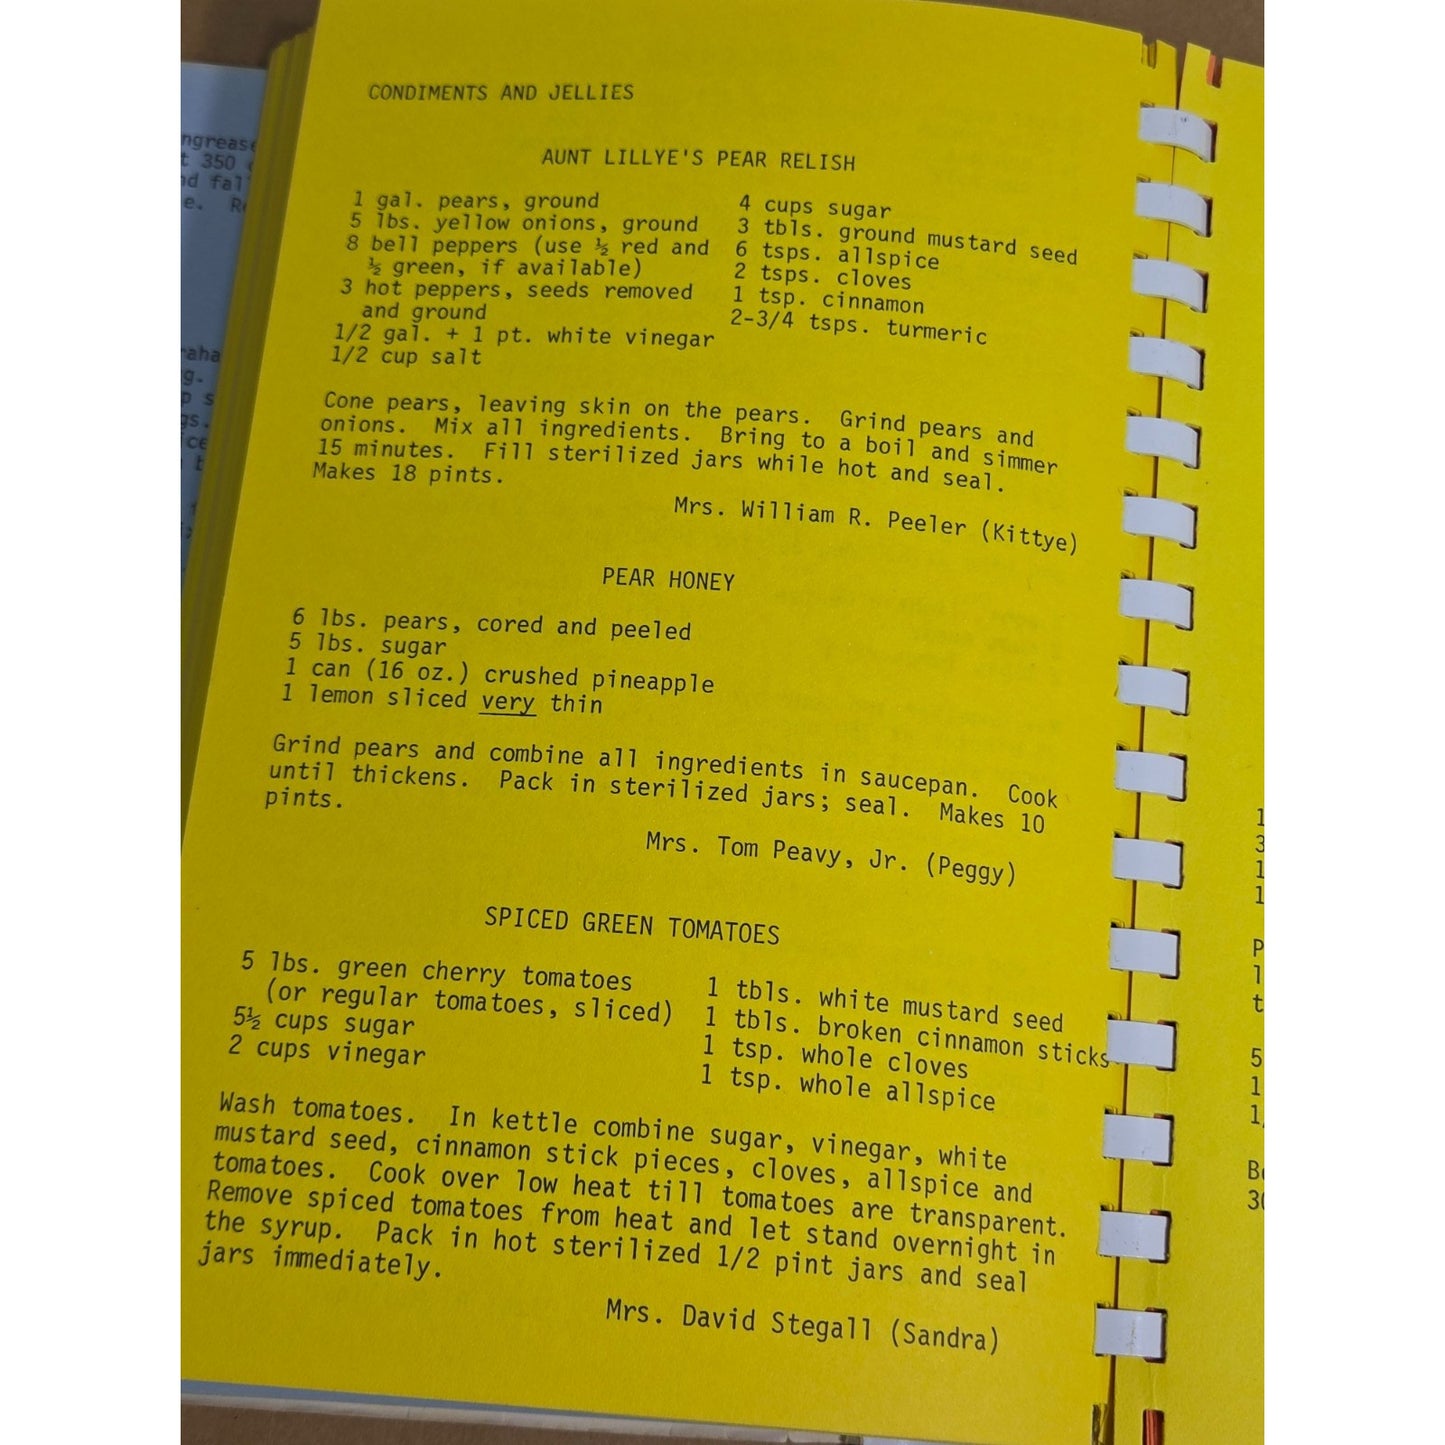 CONDIMENTS AND JELLIES
AUNT LILLYE'S PEAR RELISH
1 gal. pears, ground
5 lbs. yellow onions, ground
8 bell peppers (use ½ red and
½ green, if available)
3 hot peppers, seeds removed
and ground
1/2 gal. + 1 pt. white vinegar
1/2 cup salt
4 cups sugar
3 tbls. ground mustard seed
6 tsps. allspice
2 tsps. cloves
1 tsp. cinnamon
2-3/4 tsps. turmeric
Cone pears, leaving skin on the pears. Grind pears and
onions. Mix all ingredients. Bring to a boil and simmer
15 minutes. Fill sterilized jars while hot and seal.
Makes 18 pints.
Mrs. William R. Peeler (Kittye)
PEAR HONEY
6 lbs. pears, cored and peeled
5 lbs. sugar
1 can (16 oz.) crushed pineapple
1 lemon sliced very thin
Grind pears and combine all ingredients in saucepan. Cook
until thickens. Pack in sterilized jars; seal. Makes 10
pints.
Mrs. Tom Peavy, Jr. (Peggy)
SPICED GREEN TOMATOES
5 lbs. green cherry tomatoes
(or regular tomatoes, sliced)
5½ cups sugar
2 cups vinegar
1 tbls. white mustard seed
1 tbls. broken cinnamon sticks
1 tsp. whole cloves
1 tsp. whole allspice
Wash tomatoes. In kettle combine sugar, vinegar, white
mustard seed, cinnamon stick pieces, cloves, allspice and
tomatoes. Cook over low heat till tomatoes are transparent.
Remove spiced tomatoes from heat and let stand overnight in
the syrup. Pack in hot sterilized 1/2 pint jars and seal
jars immediately.
Mrs. David Stegall (Sandra)